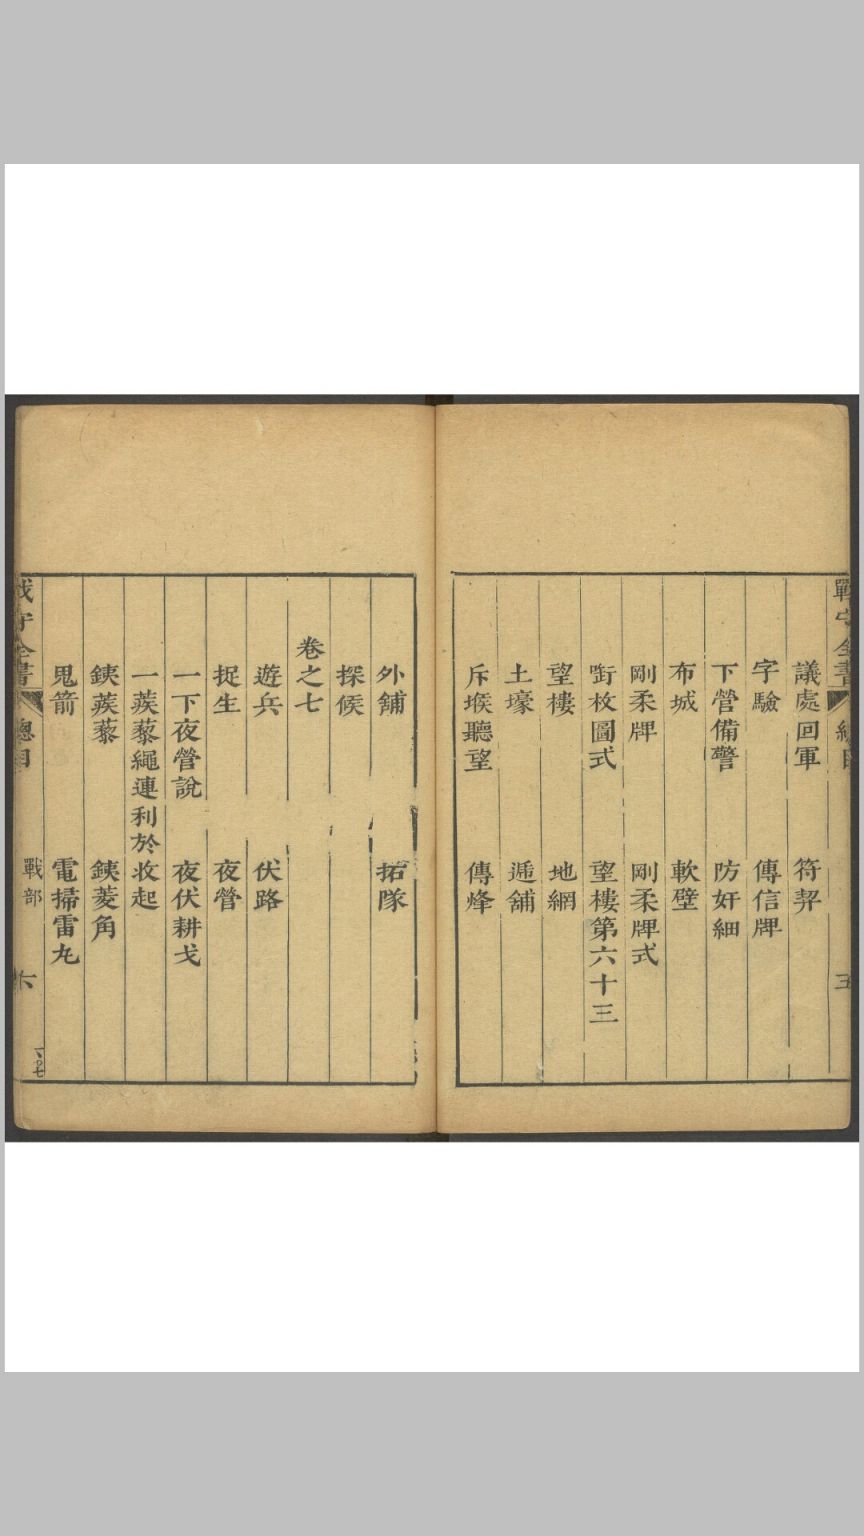 戰守全書
五
議處回軍　符契
字驗　傳信牌
下營備警　防奸細
布城　軟壁
剛柔牌　剛柔牌式
銜枚圖式　望樓第六十三
望樓　地網
土壕　遞舖
斥堠聽望　傳烽
外舖　拓隊
探候
卷之七
遊兵　伏路
捉生　夜營
一下夜營說　夜伏耕戈
一蒺藜繩連利於收起
鐵蒺藜　鐵菱角
鬼箭　電掃雷丸
戰守全書　總目　戰部　六